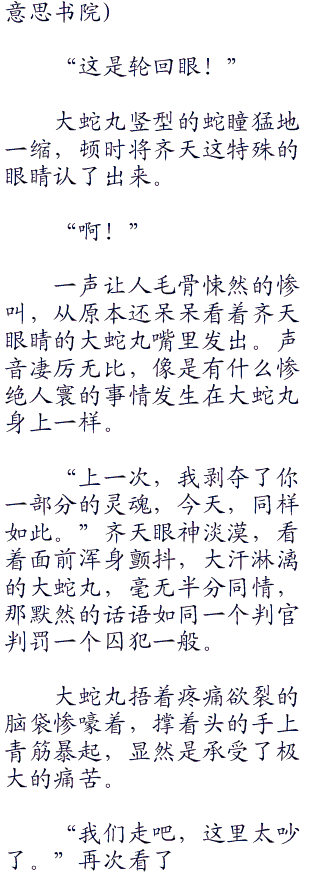 意思书院）
“这是轮回眼！”
大蛇丸竖型的蛇瞳猛地
一缩，顿时将齐天这特殊的
眼睛认了出来。
“啊！”
一声让人毛骨悚然的惨
叫，从原本还呆呆看着齐天
眼睛的大蛇丸嘴里发出。声
音凄厉无比，像是有什么惨
绝人寰的事情发生在大蛇丸
身上一样。
“上一次，我剥夺了你
一部分的灵魂，今天，同样
如此。”齐天眼神淡漠，看
着面前浑身颤抖，大汗淋漓
的大蛇丸，毫无半分同情，
那默然的话语如同一个判官
判罚一个囚犯一般。
大蛇丸捂着疼痛欲裂的
脑袋惨嚎着，撑着头的手上
青筋暴起，显然是承受了极
大的痛苦。
“我们走吧，这里太吵
了。”再次看了